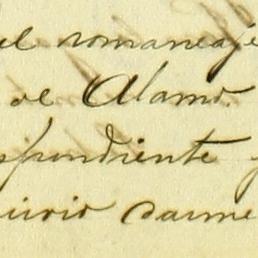 el romaneaje
de Alamo.
spondiente y
uirio darme